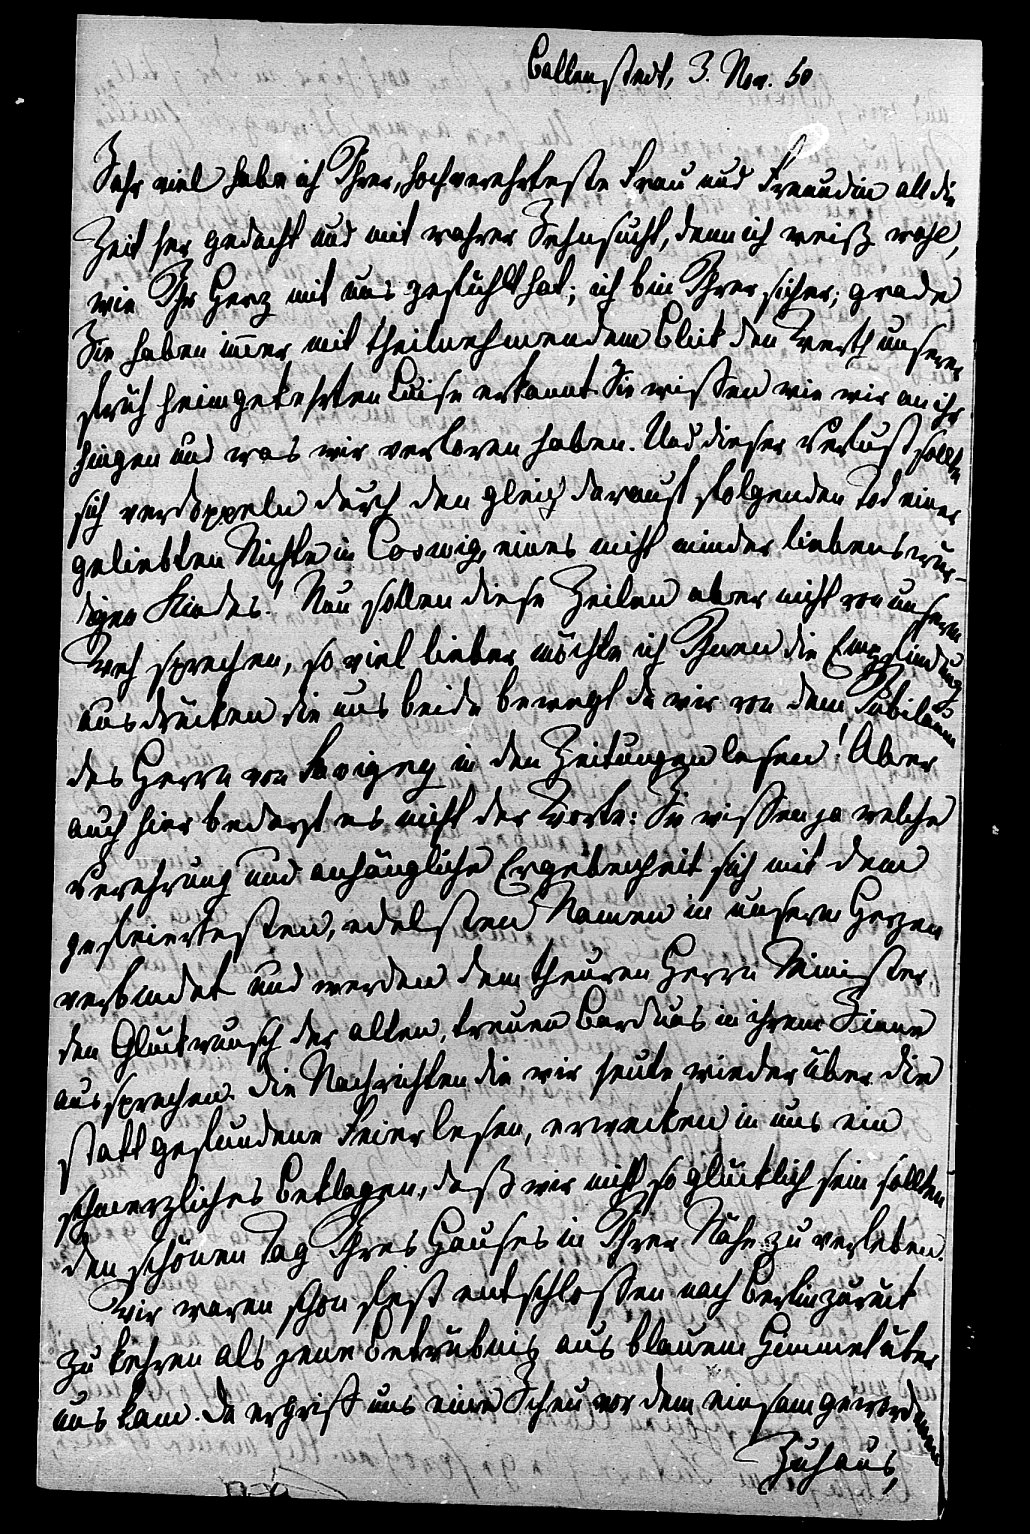 Ballenstedt, 3. Nov. 50
Sehr viel habe ich Ihrer, hochverehrteste Frau und Freundin all die
Zeit her gedacht und mit wahrer Sehnsucht, denn ich weiß wohl,
wie Ihr Herz mit uns gefühlt hat; ich bin Ihrer sicher; grade
Sie haben immer mit theilnehmendem Blick den Werth unserer
früh heimgekehrten Luise erkannt. Sie wißen wie wir an ihr
hingen und was wir verloren haben. Und dieser Verlust sollte
sich verdoppeln durch den gleich darauf folgenden Tod einer
geliebten Nichte in Coswig, eines nicht minder liebenswür-
digen Kindes! Nun sollen diese Zeilen aber nicht von unserm
Weh sprechen, so viel lieber möchte ich Ihnen die Empfindung
ausdrücken die uns beide bewegt da wir von dem Jubiläum
des Herrn von Savigny in den Zeitungen lesen! Aber
auch hier bedarf es nicht der Worte: Sie wißen ja welche
Verehrung und anhängliche Ergebenheit sich mit dem
gefeiertesten, edelsten Namen in unserm Herzen
verbindet und werden dem theuren Herrn Minister
den Glückwunsch der alten, treuen Barduas in ihrem Sinne
aussprechen. Die Nachrichten die wir heute wieder über die
statt gefundene Feier lesen, erwecken in uns ein
schmerzliches Beklagen, daß wir nicht so glücklich sein sollten
den schönen Tag Ihres Hauses in Ihrer Nähe zu verleben.
Wir waren schon fest entschloßen nach Berlin zurück
zu kehren als jene Betrübniß aus blauem Himmel über
uns kam. Da ergriff uns eine Scheu vor dem einsam gewordenen
Zuhaus,